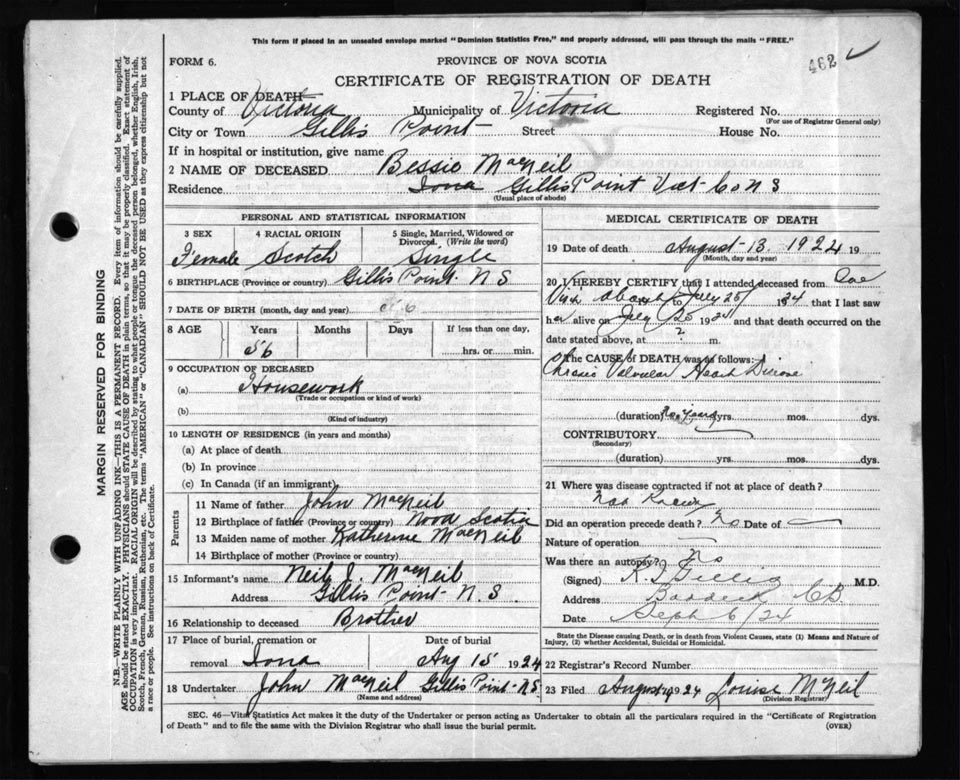 This form if placed in an unsealed envelope marked "Dominion Statistics Free," and properly addressed, will pass through the mails "FREE."
462
FORM 6.
PROVINCE OF NOVA SCOTIA
CERTIFICATE OF REGISTRATION OF DEATH
1 PLACE OF DEATH
County of Victoria Municipality of Victoria Registered No.
(For use of Registrar General only)
City or Town Gillis Point Street House No.
If in hospital or institution, give name
2 NAME OF DECEASED Bessie MacNeil
Residence Iona Gillis Point Vict- Co N S
(Usual place of abode)
PERSONAL AND STATISTICAL INFORMATION
3 SEX 4 RACIAL ORIGIN 5 Single, Married, Widowed or Divorced. (Write the word)
Female Scotch Single
6 BIRTHPLACE (Province or country) Gillis Point N S
7 DATE OF BIRTH (month, day and year)
8 AGE Years Months Days If less than one day,
56 hrs. or min.
9 OCCUPATION OF DECEASED
(a) Housework
(Trade or occupation or kind of work)
(b)
(Kind of industry)
10 LENGTH OF RESIDENCE (in years and months)
(a) At place of death
(b) In province
(c) In Canada (if an immigrant)
Parents
11 Name of father John MacNeil
12 Birthplace of father (Province or country) Nova Scotia
13 Maiden name of mother Katherine MacNeil
14 Birthplace of mother (Province or country)
15 Informant's name Neil J. MacNeil
Address Gillis Point N.S.
16 Relationship to deceased Brother
17 Place of burial, cremation or removal Iona
Date of burial Aug 15 1924
18 Undertaker John MacNeil Gillis Point N.S.
(Name and address)
MEDICAL CERTIFICATE OF DEATH
19 Date of death August 13 1924 19
(Month, day and year)
20 I HEREBY CERTIFY that I attended deceased from
July 25/ 1924, that I last saw
her alive on July 25 1924 and that death occurred on the
date stated above, at ? m.
The CAUSE of DEATH was as follows:
Chronic Valvular Heart Disease
(duration) yrs. mos. dys.
CONTRIBUTORY
(Secondary)
(duration) yrs. mos. dys.
21 Where was disease contracted if not at place of death?
Did an operation precede death? No Date of
Nature of operation
Was there an autopsy? No
(Signed) Gillis M.D.
Address Baddeck CB
Date Sept 6/24
State the Disease causing Death, or in death from Violent Causes, state (1) Means and Nature of Injury, (2) whether Accidental, Suicidal or Homicidal.
22 Registrar's Record Number
23 Filed August 1924 Louise McNeil
(Division Registrar)
SEC. 46—Vital Statistics Act makes it the duty of the Undertaker or person acting as Undertaker to obtain all the particulars required in the "Certificate of Registration
of Death" and to file the same with the Division Registrar who shall issue the burial permit. (OVER)
MARGIN RESERVED FOR BINDING
N.B.—WRITE PLAINLY WITH UNFADING INK—THIS IS A PERMANENT RECORD. Every item of information should be carefully supplied.
AGE should be stated EXACTLY. PHYSICIANS should STATE CAUSE OF DEATH in plain terms, so that it may be properly classified. Exact statement of
OCCUPATION is very important. RACIAL ORIGIN will be described by stating to what people or tongue the deceased person belonged, whether English, Irish,
Scotch, French, German, Russian, Ruthenian, etc. The terms "AMERICAN" or "CANADIAN" SHOULD NOT BE USED as they express citizenship but not
a race or people. See instructions on back of Certificate.